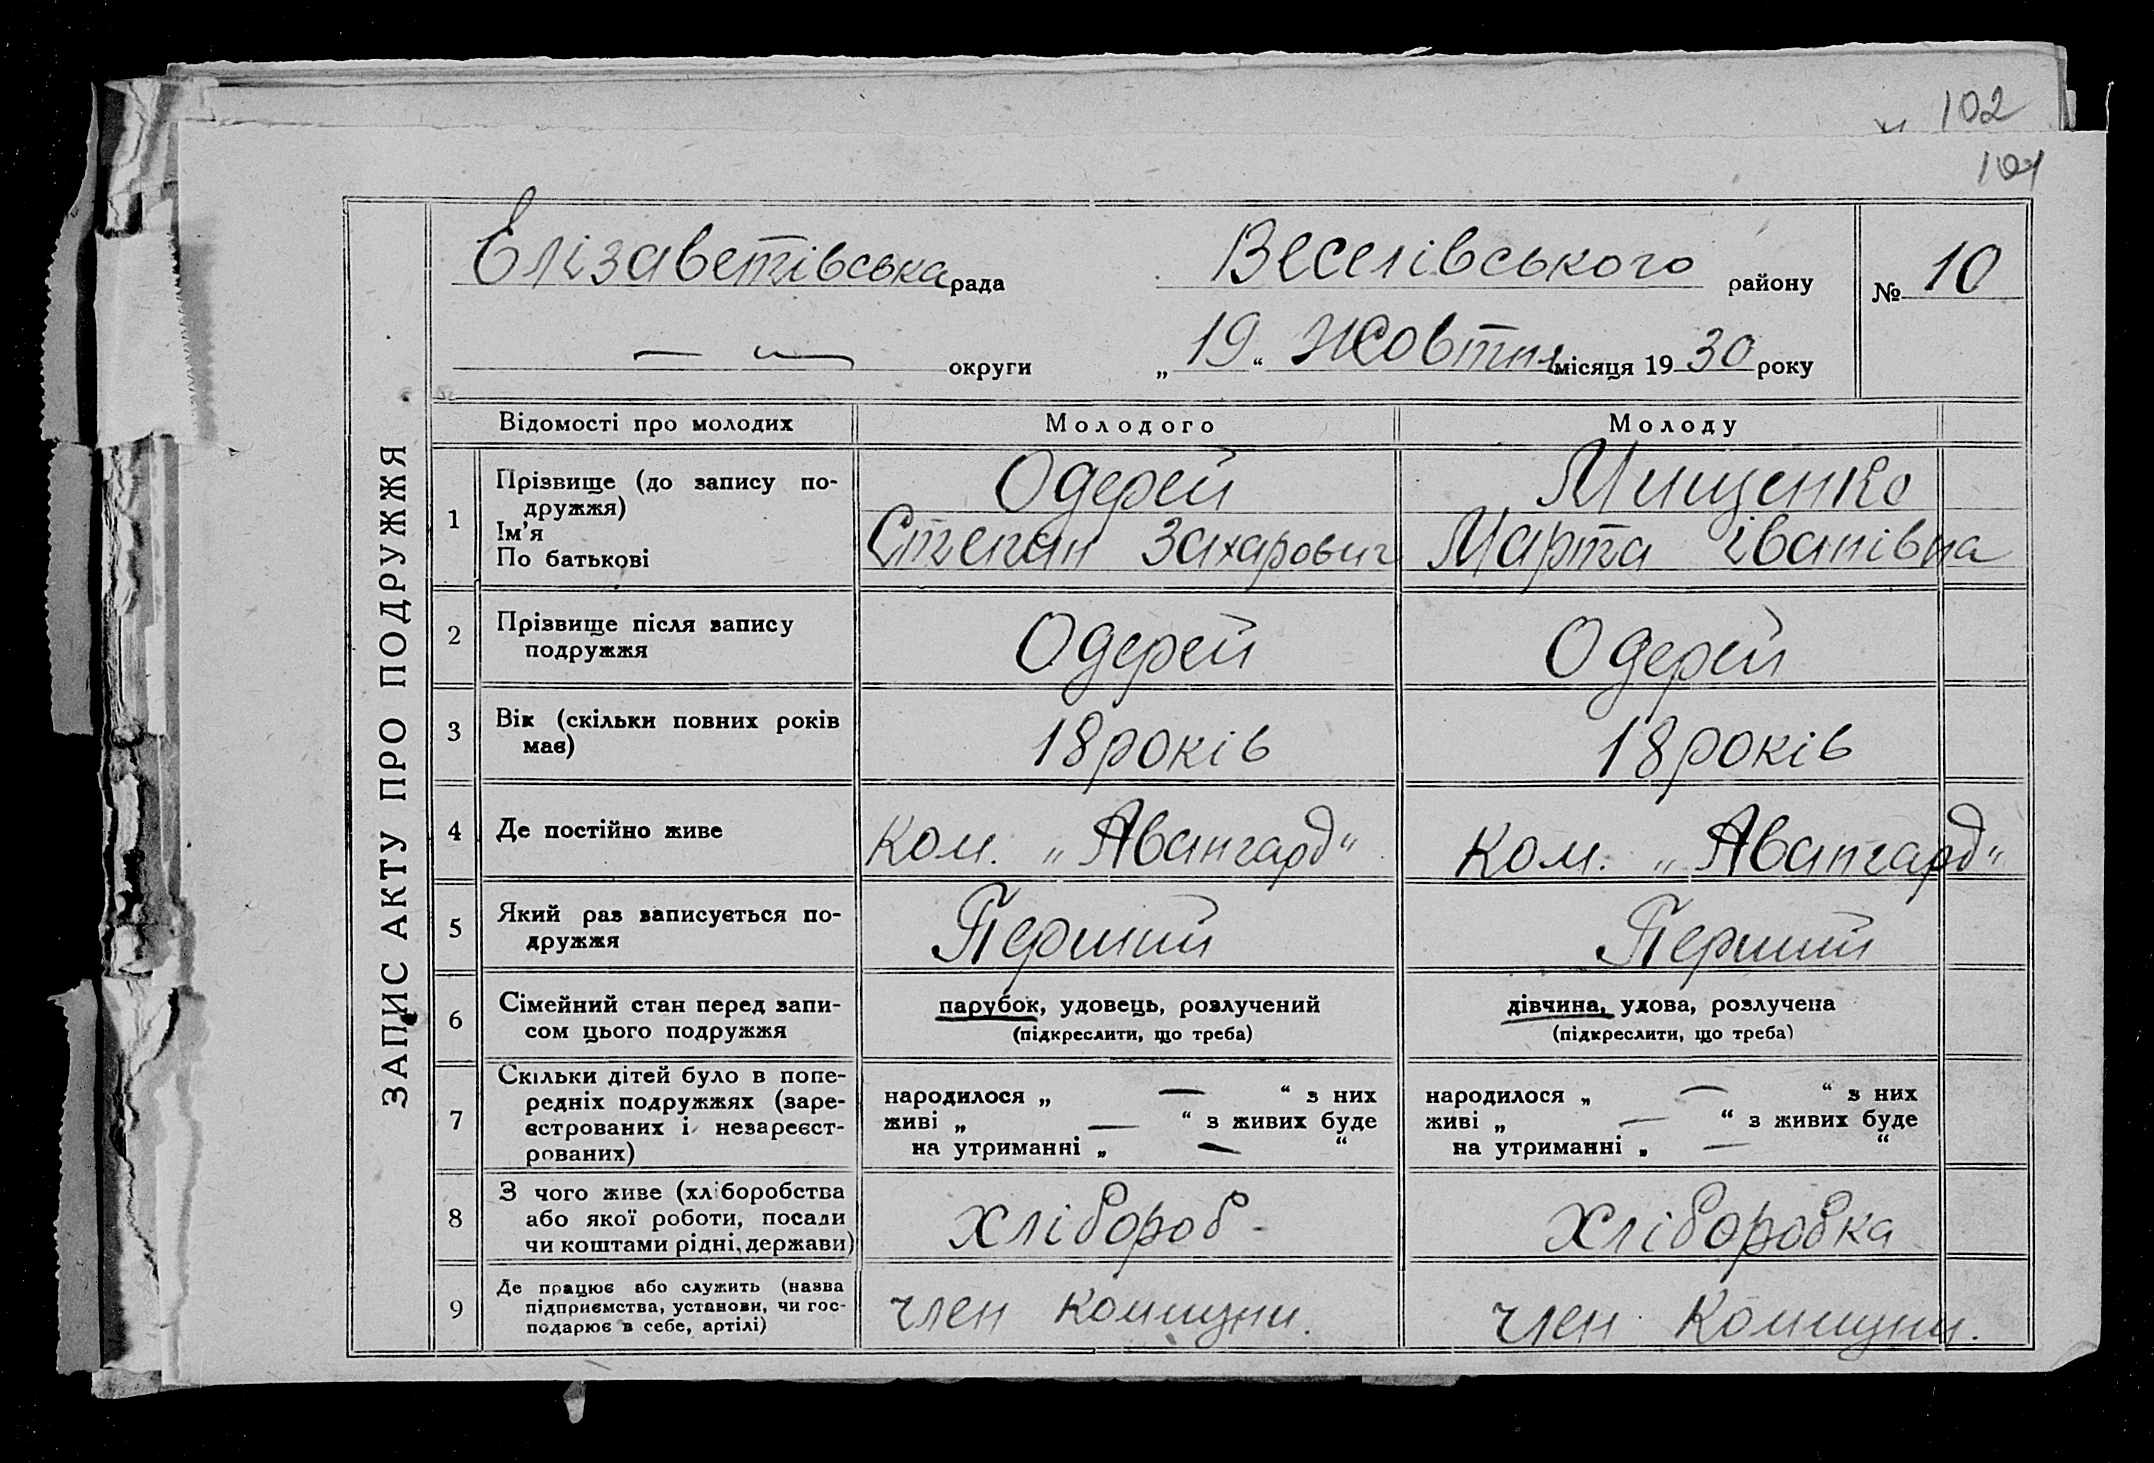 102
ЗАПИС АКТУ ПРО ПОДРУЖЖЯ
Єлізаветівська рада
Веселівського району
№ 10
— „ — округи
„ 19 “ Жовтня місяця 19 30 року
Відомості про молодих
Молодого
Молоду
1
Прізвище (до запису по-
дружжя)
Ім’я
По батькові
Одерей
Степан Захарович
Мищенко
Марта Іванівна
2
Прізвище після запису
подружжя
Одерей
Одерей
3
Вік (скільки повних років
має)
18 років
18 років
4
Де постійно живе
Ком. „Авангард“
Ком. „Авангард“
5
Який раз записується по-
дружжя
Перший
Перший
6
Сімейний стан перед запи-
сом цього подружжя
парубок, удовець, розлучений
(підкреслити, що треба)
дівчина, удова, розлучена
(підкреслити, що треба)
7
Скільки дітей було в попе-
редніх подружжях (заре-
єстрованих і незареєст-
рованих)
народилося „ — “ з них
живі „ — “ з живих буде
на утриманні „ — “
народилося „ — “ з них
живі „ — “ з живих буде
на утриманні „ — “
8
З чого живе (хліборобства
або якої роботи, посади
чи коштами рідні, держави)
Хлібороб -
Хліборобка
9
Де працює або служить (назва
підприємства, установи, чи гос-
подарює в себе, артілі)
член комуни.
член комуни.